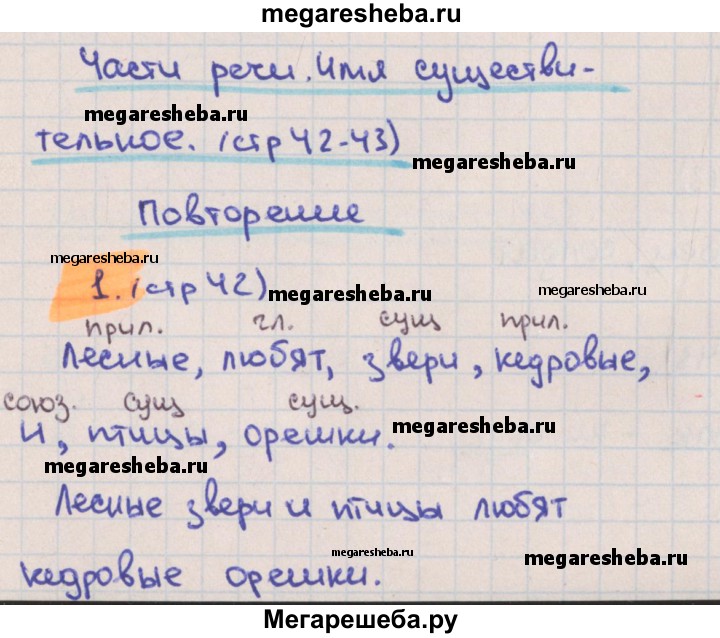 megaresheba.ru
Части речи. Имя существи-
megaresheba.ru
тельное. (стр 42-43)
megaresheba.ru
Повторение
megaresheba.ru
1. (стр 42)
megaresheba.ru
megaresheba.ru
прил. гл. сущ прил.
Лесные, любят, звери, кедровые,
союз. сущ сущ.
и, птицы, орешки.
megaresheba.ru
megaresheba.ru
Лесные звери и птицы любят
megaresheba.ru
megaresheba.ru
кедровые орешки.
Мегарешеба.ру